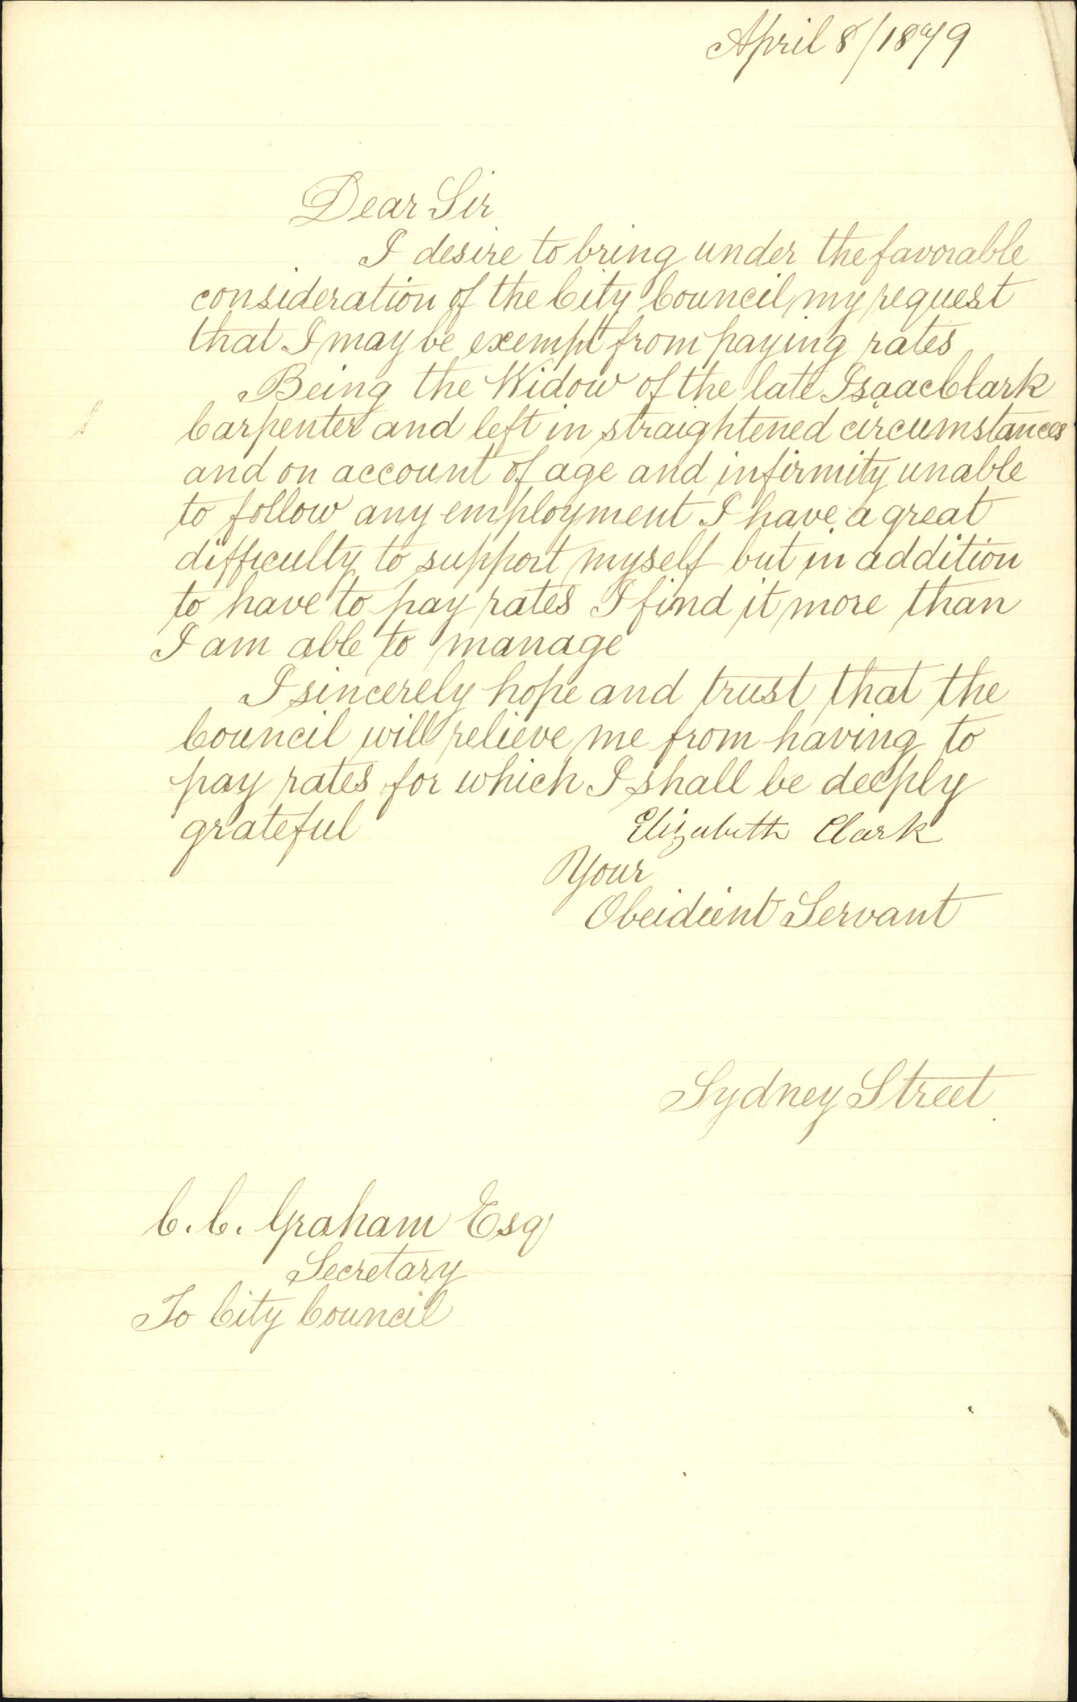 April 8/1879
Dear Sir
I desire to bring under the favorable
consideration of the City Council, my request
that I may be exempt from paying rates
Being the Widow of the late Isaac Clark
Carpenter and left in straightened circumstances
and on account of age and infirmity unable
to follow any employment I have a great
difficulty to support myself but in addition
to have to pay rates I find it more than
I am able to manage
I sincerely hope and trust that the
Council will relieve me from having to
pay rates for which I shall be deeply
grateful
Elizabeth Clark
Your
Obeidient Servant
Sydney Street
C. C. Graham Esq
Secretary
To City Council